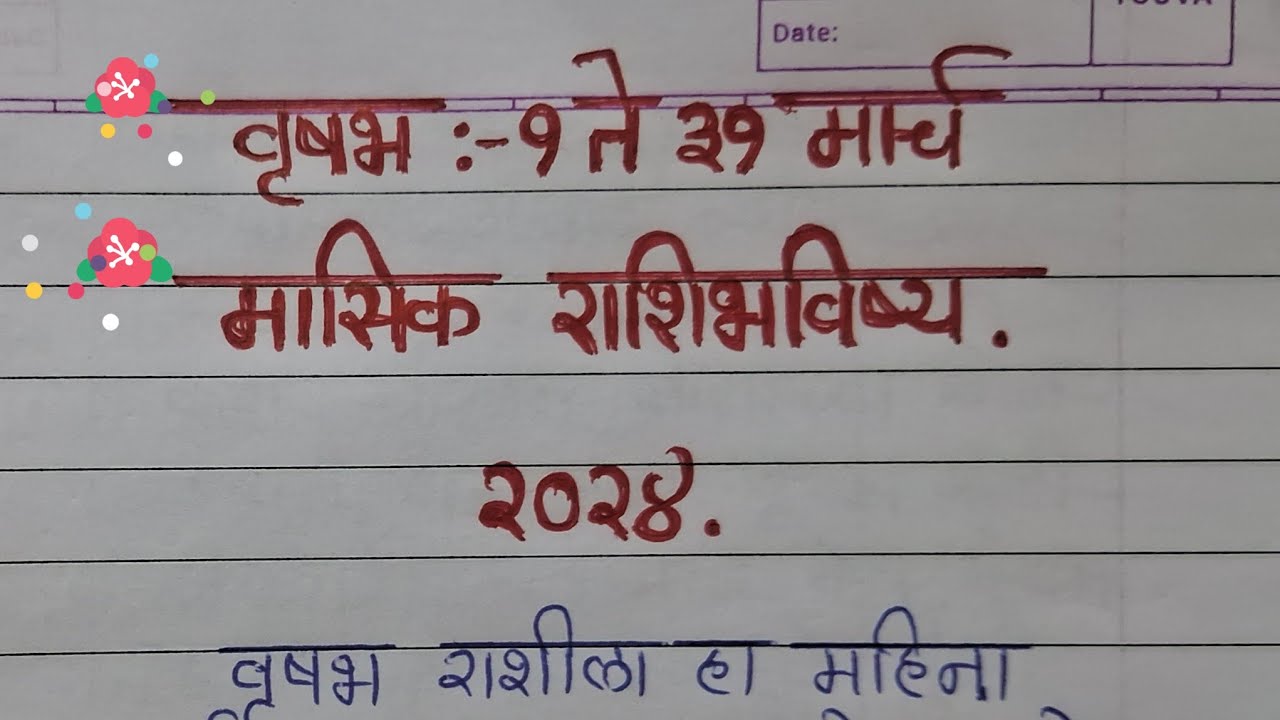 Date:
वृषभ :- १ ते ३१ मार्च
मासिक राशिभविष्य.
२०२४.
वृषभ राशीला हा महिना